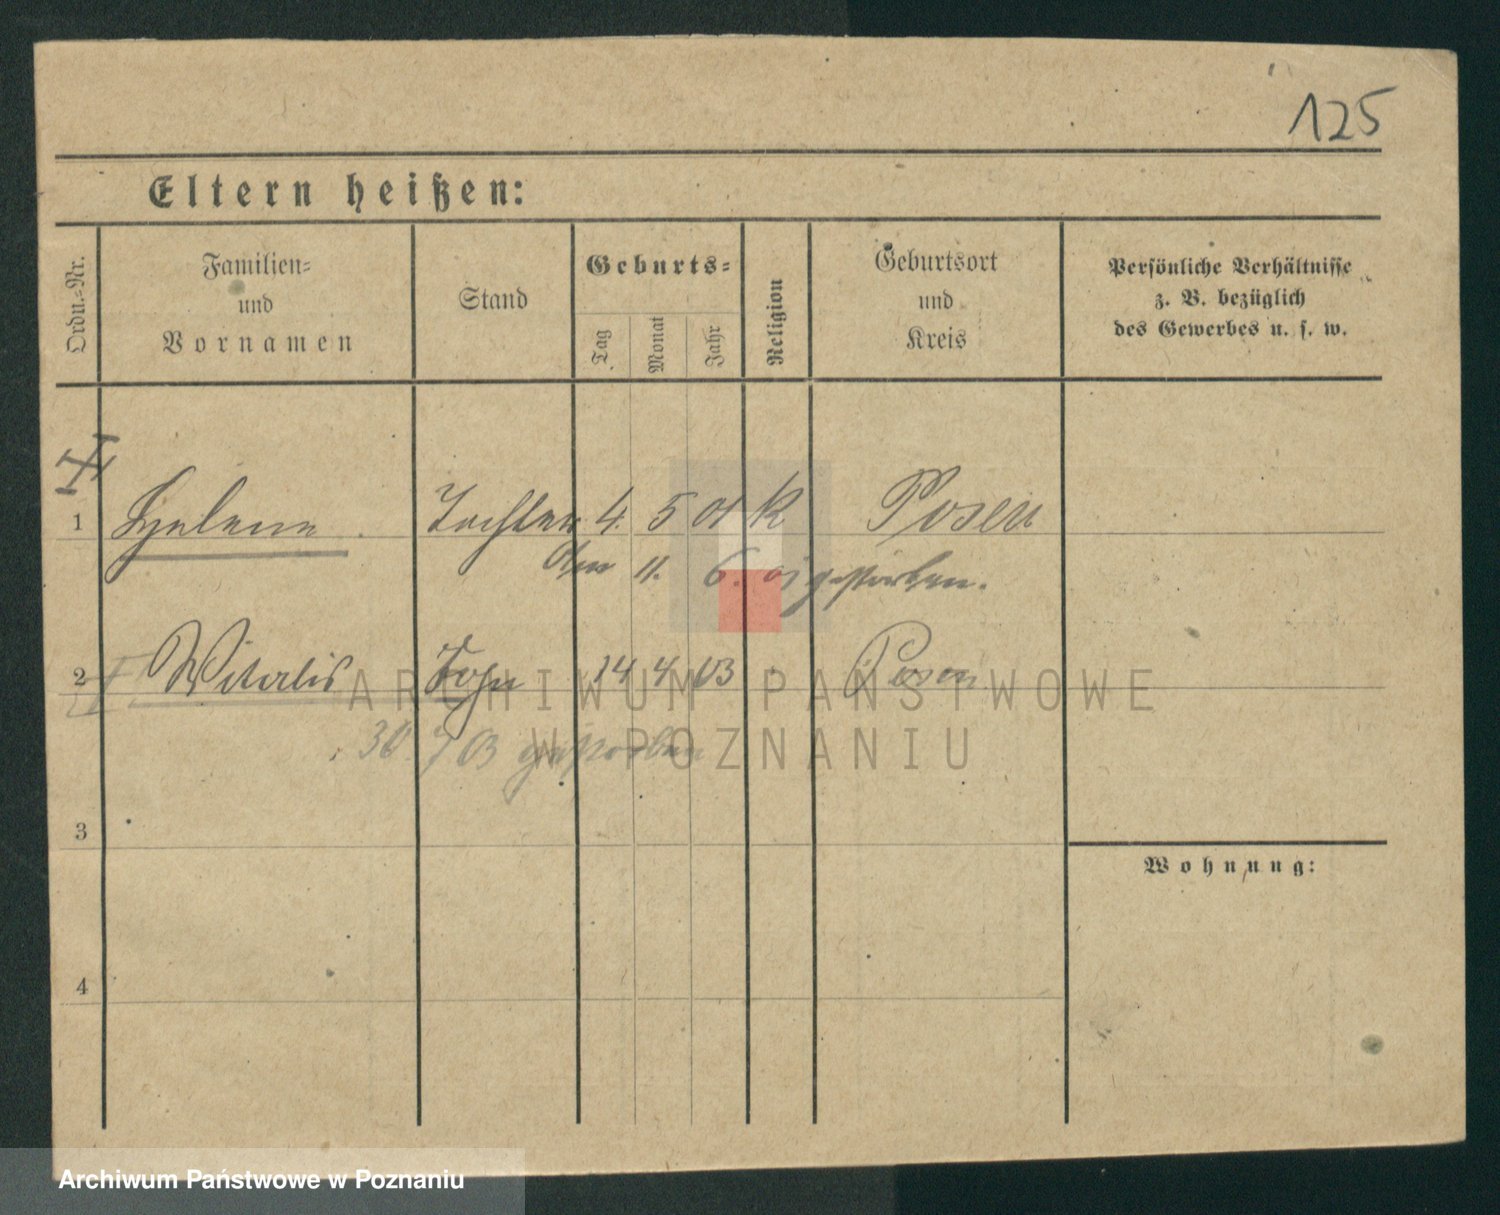 125
Eltern heißen:
Ordn.-Nr.
Familien-
und
Vornamen
Stand
Geburts-
Tag
Monat
Jahr
Religion
Geburtsort
und
Kreis
Persönliche Verhältnisse
z. B. bezüglich
des Gewerbes u. s. w.
1 Helene Tochter 4. 5 01 K Posen
den 11. 6. 01 gestorben.
2 Vitalis Sohn 14 4 03 Posen
30. 7 03 gestorben
ARCHIWUM PAŃSTWOWE
W POZNANIU
3
Wohnung:
4
Archiwum Państwowe w Poznaniu